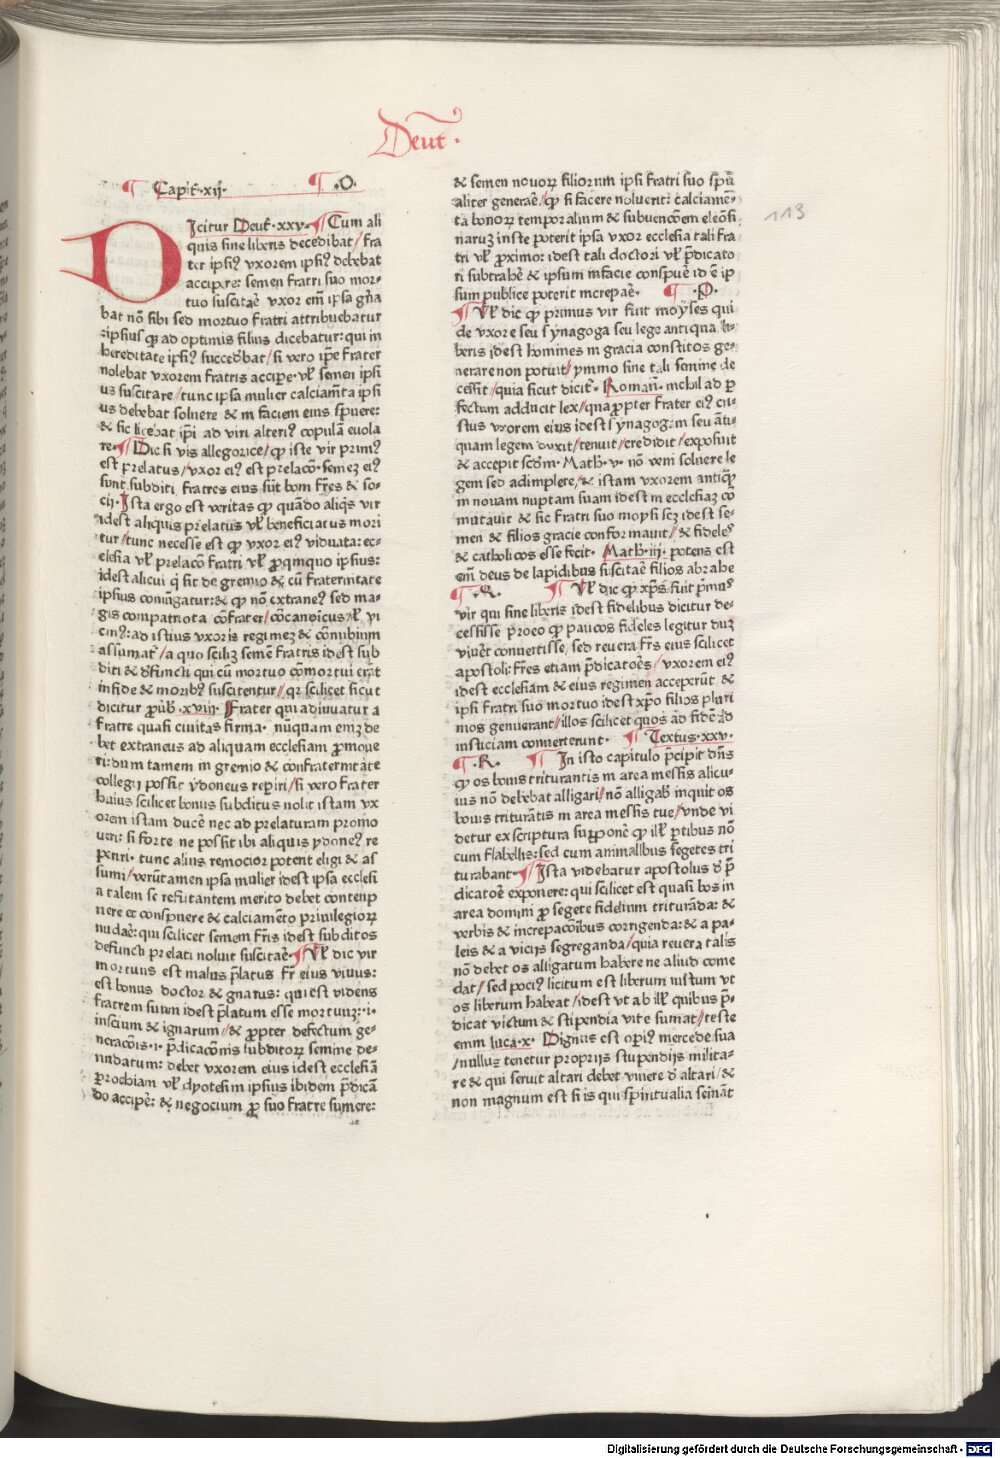 Deut̄.
¶ Capit̄.xij. ¶ .O.
DIcitur Deut̄.xxv.¶Cum ali
quis sine liberis decedibat/fra
ter ipsiꝰ vxorem ipsiꝰ debebat
accipere: semen fratri suo mor-
tuo suscitaē vxor em̄ ipsa gn̄a
bat nō sibi sed mortuo fratri attribuebatur
ipsius qꝫ ad optimis filius dicebatur: qui in
hereditate ipsiꝰ succedebat/si vero ip̄e frater
nolebat vxorem fratris accipe.vl̄ semen ipsi
us suscitare/tunc ipsa mulier calciam̄ta ipsi
us debebat soluere & in faciem eius spuere:
& sic licebat ip̄i ad viri alteriꝰ copulā euola
re.¶Dic si vis allegorice/ꝙ iste vir primꝰ
est prelatus/vxor eiꝰ est prelacō.semen eiꝰ
sunt subditi, fratres eius sūt boni fr̄es & so-
cij.Ista ergo est veritas ꝙ quādo aliq̄s vir
idest aliquis prelatus vl̄ beneficiatus mori
tur/tunc necesse est ꝙ vxor eiꝰ viduata: ec-
clesia vl̄ prelacō fratri vl̄ ꝓqinquo ipsius:
idest alicui q̄ sit de gremio & cū fraternitate
ipsius coniūgatur:& ꝙ nō extraneꝰ sed ma-
gis compatriota cōfrater/cōcanōicus vl̄ vi
cinꝰ: ad istius vxoris regimeꝫ & cōnubium
assumat̄/a quo sciliꝫ semē fratris idest sub
diti & defuncti qui cū mortuo cōmortui erāt
in fide & moribꝰ suscitentur/qꝛ scilicet sicut
dicitur ꝓuḃ.xviij. Frater qui adiuuatur a
fratre quasi ciuitas firma. nūquam emꝫ de
bet extraneus ad aliquam ecclesiam ꝓmoue
ri:dum tamem in gremio & confraternitate
collegij possit ydoneus reperiri/si vero frater
huius scilicet bonus subditus nolit istam vx
orem istam ducē nec ad prelaturam promo
ueri: si forte ne possit ibi aliquis ydoneꝰ re
periri. tunc alius remocior poterit eligi & as
sumi/verūtamen ipsa mulier idest ipsa ecclesi
a talem se refutantem merito debet contenp
nere et conspuere & calciamēto priuilegioꝝ
nudaē: qui scilicet semem fr̄is idest subditos
defuncti prelati noluit suscitaē.¶Vl̄ dic vir
mortuus est malus p̄latus fr̄ eius viuus:
est bonus doctor & gnarus: qui est videns
fratrem suum idest p̄latum esse mortuꝫ:.i.
inscium & ignarum/& ꝓpter defectum ge-
neracōis.i.p̄dicacōnis subditoꝝ semine de-
nudatum: debet vxorem eius idest ecclesiā
ꝓrochiam vl̄ dyotesim ipsius ibidem p̄dicā
do accipē: & negocium ꝓ suo fratre sumere:
& semen nouoꝝ filiorum ipsi fratri suo spūa
aliter generaē/ꝙ si facere noluerit: calciamē-
ta bonoꝝ temporalium & subuencōem eleōsi-
naruꝫ iuste poterit ipsa vxor ecclesia tali fra
tri vl̄ ꝓximo: idest tali doctori vl̄ p̄dicato
ri subtrahē & ipsum in facie conspuē id ē ip
sum publice poterit increpaē. ¶ .P.
¶Vl̄ dic ꝙ primus vir fuit moyses qui
de vxore seu synagoga seu lege antiqua li-
beris idest homines in gracia constitos ge-
nerare non potuit/ymmo sine tali semine de
cessit/quia sicut dicit̄. Roman̄. nichil ad p
fectum adducit lex/qnapropter frater eiꝰ cri-
stus vxorem eius idest synagogam seu āti-
quam legem duxit/tenuit/credidit/exposuit
& accepit scd̄m.Math̄.v. nō veni soluere le
gem sed adimplere/& istam vxorem antiqꝫ
in nouam nuptam suam idest in ecclesiaꝫ cō
mutauit & sic fratri suo moysi scꝫ idest se-
men & filios gracie conformauit/& fideles
& catholicos esse fecit. Math̄.iij. potens est
em̄ deus de lapidibus suscitaē filios abrahe
¶.Q. ¶Vl̄ dic ꝙ xp̄s fuit p̄muꝰ
vir qui sine liberis idest fidelibus dicitur de-
cessisse proeo ꝙ paucos fideles legitur duꝫ
viuēt conuertisse, sed reuera fr̄s eius scilicet
apostoli: fr̄es etiam p̄dicatoēs/vxorem eiꝰ
idest ecclesiam & eius regimen acceperūt, &
ipsi fratri suo mortuo idest xp̄o filios pluri
mos genuerant/illos scilicet quos ad fidē ad
iusticiam conuerterunt. ¶Textus.xxv.
¶.R. ¶In isto capitulo p̄cipit dn̄s
ꝙ os bouis triturantis in area messis alicu-
ius nō debebat alligari/nō alligab̄ inquit os
bouis triturātis in area messis tue/vnde vi
detur ex scriptura supponē ꝙ ill̄ ꝑtibus nō
cum flabellis: sed cum animalibus segetes tri
turabant.¶Ista videbatur apostolus d̄ p̄
dicatoē exponere: qui scilicet est quasi bos in
area domini ꝓ segete fidelium triturāda: &
verbis & increpacōibus corrigenda: & a pa-
leis & a vicijs segreganda/quia reuera talis
nō debet os alligatum habere ne aliud come
dat/sed pociꝰ licitum est liberum iustum vt
os liberum habeat/idest vt ab ill̄ quibus p̄-
dicat victum & stipendia vite sumat/teste
emm luca.x. Dignus est opiꝰ mercede sua
/nullus tenetur proprijs stupendijs milita-
re & qui seruit altari debet viuere d̄ altari/&
non magnum est si is qui spiritualia seīnāt
113
Digitalisierung gefördert durch die Deutsche Forschungsgemeinschaft - DFG